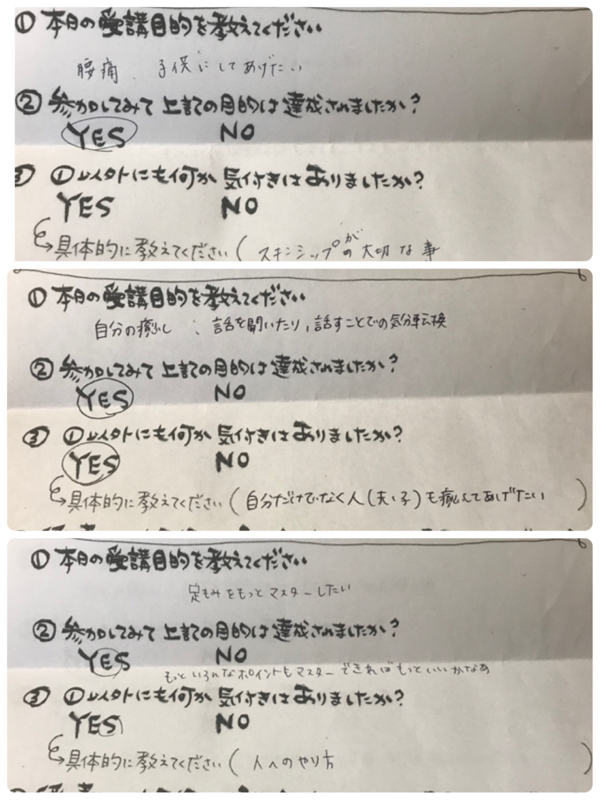 ① 本日の受講目的を教えてください
腰痛、子供にしてあげたい
② 参加してみて上記の目的は達成されましたか?
YES NO
③ ①以外にも何か気付きはありましたか?
YES NO
具体的に教えてください( スキンシップがの大切な事
① 本日の受講目的を教えてください
自分の癒し、話を聞いたり、話すことでの気分転換
② 参加してみて上記の目的は達成されましたか?
YES NO
③ ①以外にも何か気付きはありましたか?
YES NO
具体的に教えてください(自分だけでなく人(夫、子)も癒してあげたい )
① 本日の受講目的を教えてください
足もみをもっとマスターしたい
② 参加してみて上記の目的は達成されましたか?
YES NO
もっといろんなポイントもマスターできればもっといいかなあ
③ ①以外にも何か気付きはありましたか?
YES NO
具体的に教えてください( 人へのやり方 )